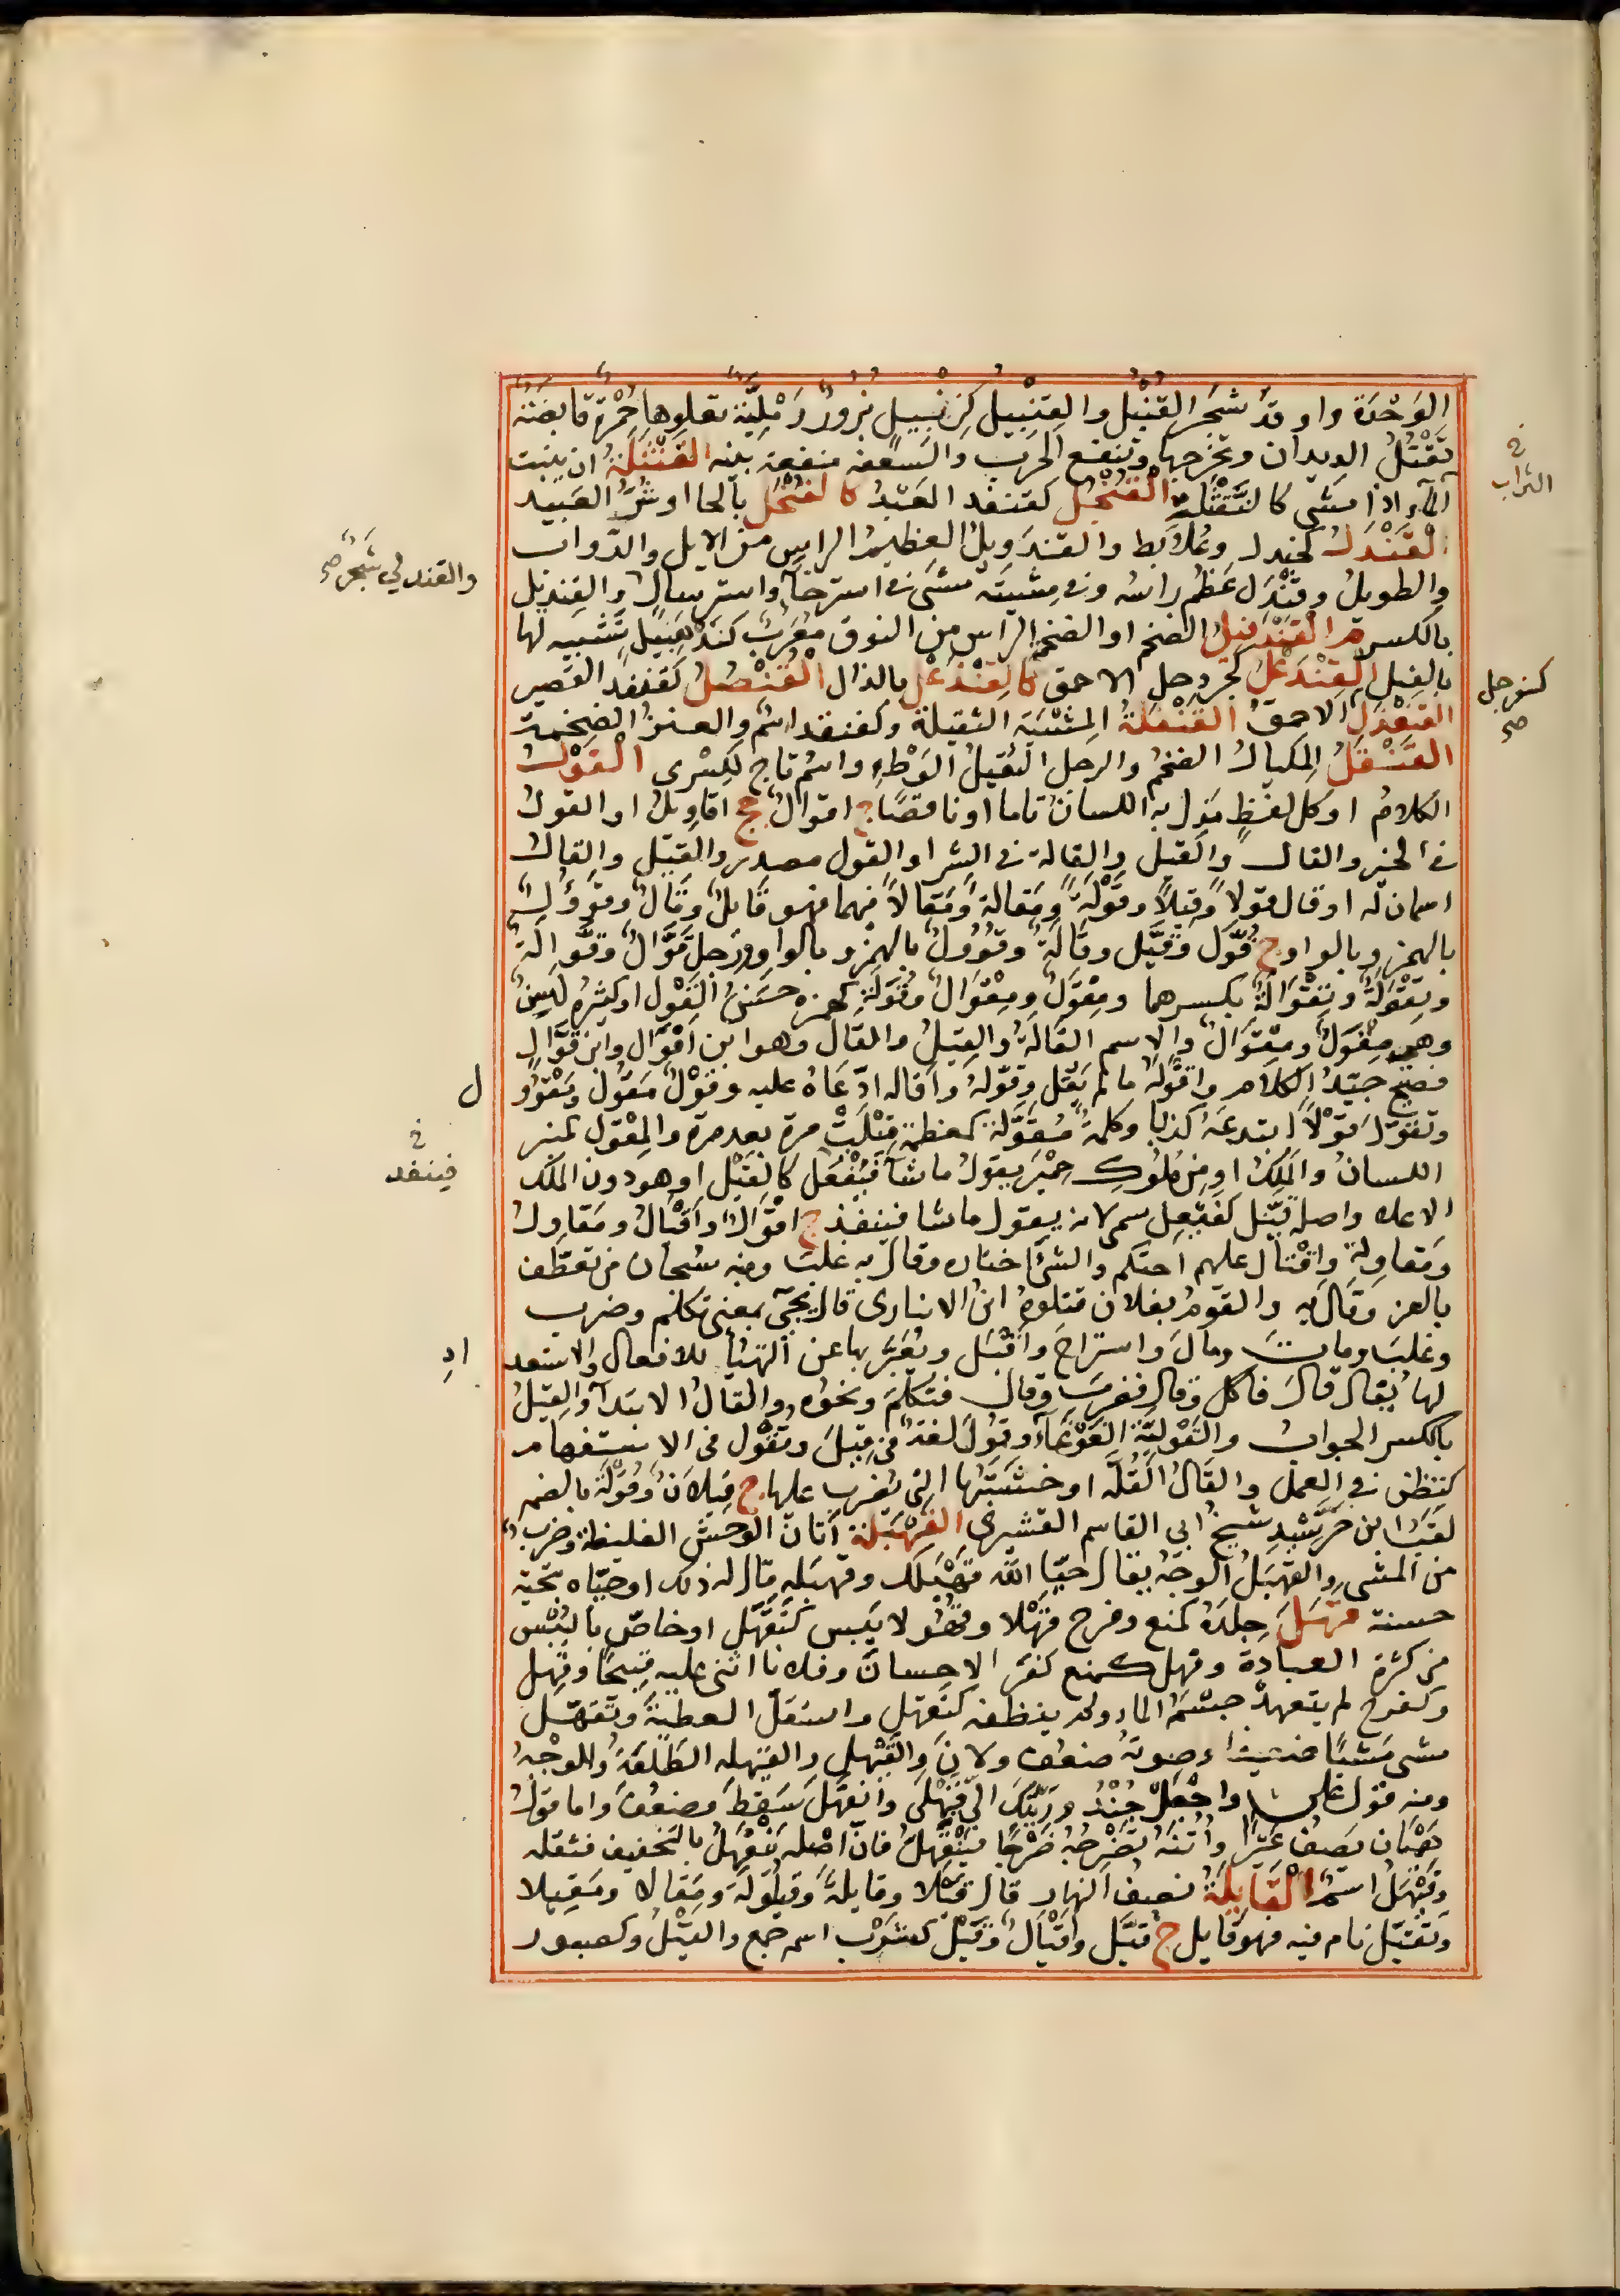 الوَحْدَة واوقدَ شجَر القِنْبِل والقِنْبِيلُ كزِنْبِيلٍ بُزورٌ رَمْلِيَّة تعلوها حُمْرة قابضة
تَقْتُلُ الديدان وتخرجها وتنفع الجرب والسَّعفة منفعة بينه القَنْثَلَةُ ان ينبث
المآء اذا مشى كالنَّقْثَلة القُنْجُل كقنفد العَبْدُ كالقُنْحُل بالحا او شرّ العَبيد
القَنْدَل كجندل وعُلابط والقندَوِيلُ العظيمُ الراسِ من الابل والدّواب
والطويلُ وقَنْدَل عَظُم راسُه وفي مِشيَتَه مشَى في استرخآءٍ واسترسالٍ والقِنديل
بالكسر م القَنْدَفِيلُ الضخم او الضخمُ الراس من النوق معرّب كَنْدَه بيل تشبيه لها
بالفِيل القِنْدَعْلُ كجِردحلٍ الاحمق كالقِنْذَعْل بالذال القُنْصُلُ كقنفذ القصير
القَنعْدَل الاحمقُ القَنْفلةُ المِشْيَة الثقيلة وكقنفد اسمٌ والعنزُ الضخمة
القَنْقَلُ المكيال الضخمُ والرجل الثقيلُ الوَطْءِ واسمُ تاج لكِسْرى القَوْلُ
الكلامُ او كل لفظٍ مَذِل به اللسانُ تاما او ناقصًا ج اقوالٌ جج اقاويلُ او القولُ
في الخير والقال والقيل والقالة في الشر او القول مصدر والقِيل والقالُ
اسمان له او قال قولاً وقِيلاً وقَوْلَةً ومَقالةً ومَقالاً فيهما فهو قايلٌ وقالٌ وقَؤُولٌ
بالهمز وبالواو ج قُوَّل وقُيَّل وقالَةٌ وقُوُولٌ بالهمز وبالواو ورجلٌ قَوّالٌ وقوّالَةٌ
وتِقْوَلَةٌ وتِقْوالةٌ بكسرهما ومِقْوَلٌ ومِقْوالٌ وقُوَلَةٌ كهمزه حسَنُ القول او كثيرُه لَسِنٌ
وهي مِقْوَلٌ ومِقْوالٌ والاسم القالَةُ والقِيلُ والقالُ وهو ابن اقوال وابن قَوّالٍ
فصيح جيّدُ الكلام واقْوَلَهُ ما لم يَقُل وقَوّلهُ واقاله ادّعَاهُ عليه وقَوْلٌ مَقُولٌ ومَقْوُو ل
وتقوّل قَوْلاً ابتدعَهُ كذبا وكلمةٌ مُقَوَّلة كمعظمة قِيلَتْ مرة بعد مرة والمِقْوَل كمنبر
اللسانُ والمَلِكُ او من مُلُوك حِمْيَر يقولُ ما شآءَ فيُفْعَل كالقَيْل او هو دون الملك
الاعلى واصله قيّل كفَيْعِل سمي لانه يقول ما شا فينفذ ج اقوال واقيال ومقاول
ومَقاولة واقْتال عليهم احتكم والشئَ اختاره وقال به غلب ومنه سبحان من تعطّف
بالعز وقال به والقوم بفلان قتلوهُ ابن الانباري قال يجئ بمعنى تكلم وضرب
وغلبَ ومات ومالَ واستراحَ واقبَل ويُعَبَّر بها عن التهيّأ للافعال والاستعد ادِ
لها يُقال قال فاكل وقال فضربَ وقال فتكلّمَ ونحوُه والقالُ الابتدآء والقِيلُ
بالكسر الجوابُ والقَوْليّة الغَوْغآءُ وقُولَ لغةٌ في قيلَ وتقُول في الاستفهام
كتظن في العمل والقالُ القُلّة او خشبتها التي تُضرب عليها ج قِيلانٌ وقُولَة بالضم
لقبُ ابن خُرَّشِيد شيخ ابي القاسم القشيرى القَهْبَلة اتانُ الوحش الغليظة وضرب
من المشي والقَهبَلُ الوجهُ يقال حيّا الله قَهْبَلك وقهبَله قال له ذلك او حيّاه بتحيّة
حسنة قهِل جلدُه كمنع وفرح قَهْلا وقُهُولا يَبس كتقهّل او خاصٌ باليُبْس
من كثرة العبادة وقهل كمنع كفر الاحسانَ وفلانا اثنى عليه قبيحًا وقهل
وكفرح لم يتعهدْ جِسْمَه بالماء ولم ينظفه كتقهل واستقلَّ العطيةَ وتَقَهّل
مشى مَشيًا ضعيفا وصوتهُ ضعُف ولانَ والقَيْهل والقيهله الطّلعةُ والوجهُ
ومنه قول على واجْعَلْ جُنْدُورَتَيْكَ الى قَيْهَلى وانقَهَلَ سَقطَ وضعُفَ واما قولُ
هِمْيان يصِفُ عَيْرا واُتُنَه تَضْرَحُهُ ضَرْحًا فيَنْقَهِلُّ فان اصله يَنْقَهِلُ بالتخفيف فثقله
وقَيْهَلُ اسمٌ القايلةُ نصف النهار قال قَيْلا وقايلةً وقيلولةً ومَقالا ومَقيلا
وتقَيّل نام فيه فهو قايل ج قُيَّل وقُيَّالٌ وقَيْلٌ كشَرْب اسم جمع والقَيْلُ وكصبور
خ
التراب
كسفرجل
صح
والقندلي شَجَرٌ صح
خ
فينفد